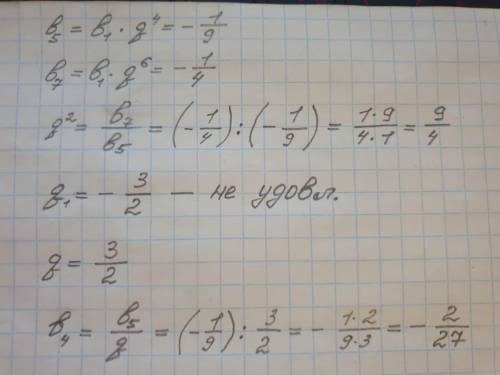 в₅ = в₁ · q⁴ = - 1/9
в₇ = в₁ · q⁶ = - 1/4
q² = в₇/в₅ = (- 1/4) : (- 1/9) = 1·9/4·1 = 9/4
q₁ = - 3/2 — не удовл.
q = 3/2
в₄ = в₅/q = (- 1/9) : 3/2 = - 1·2/9·3 = - 2/27